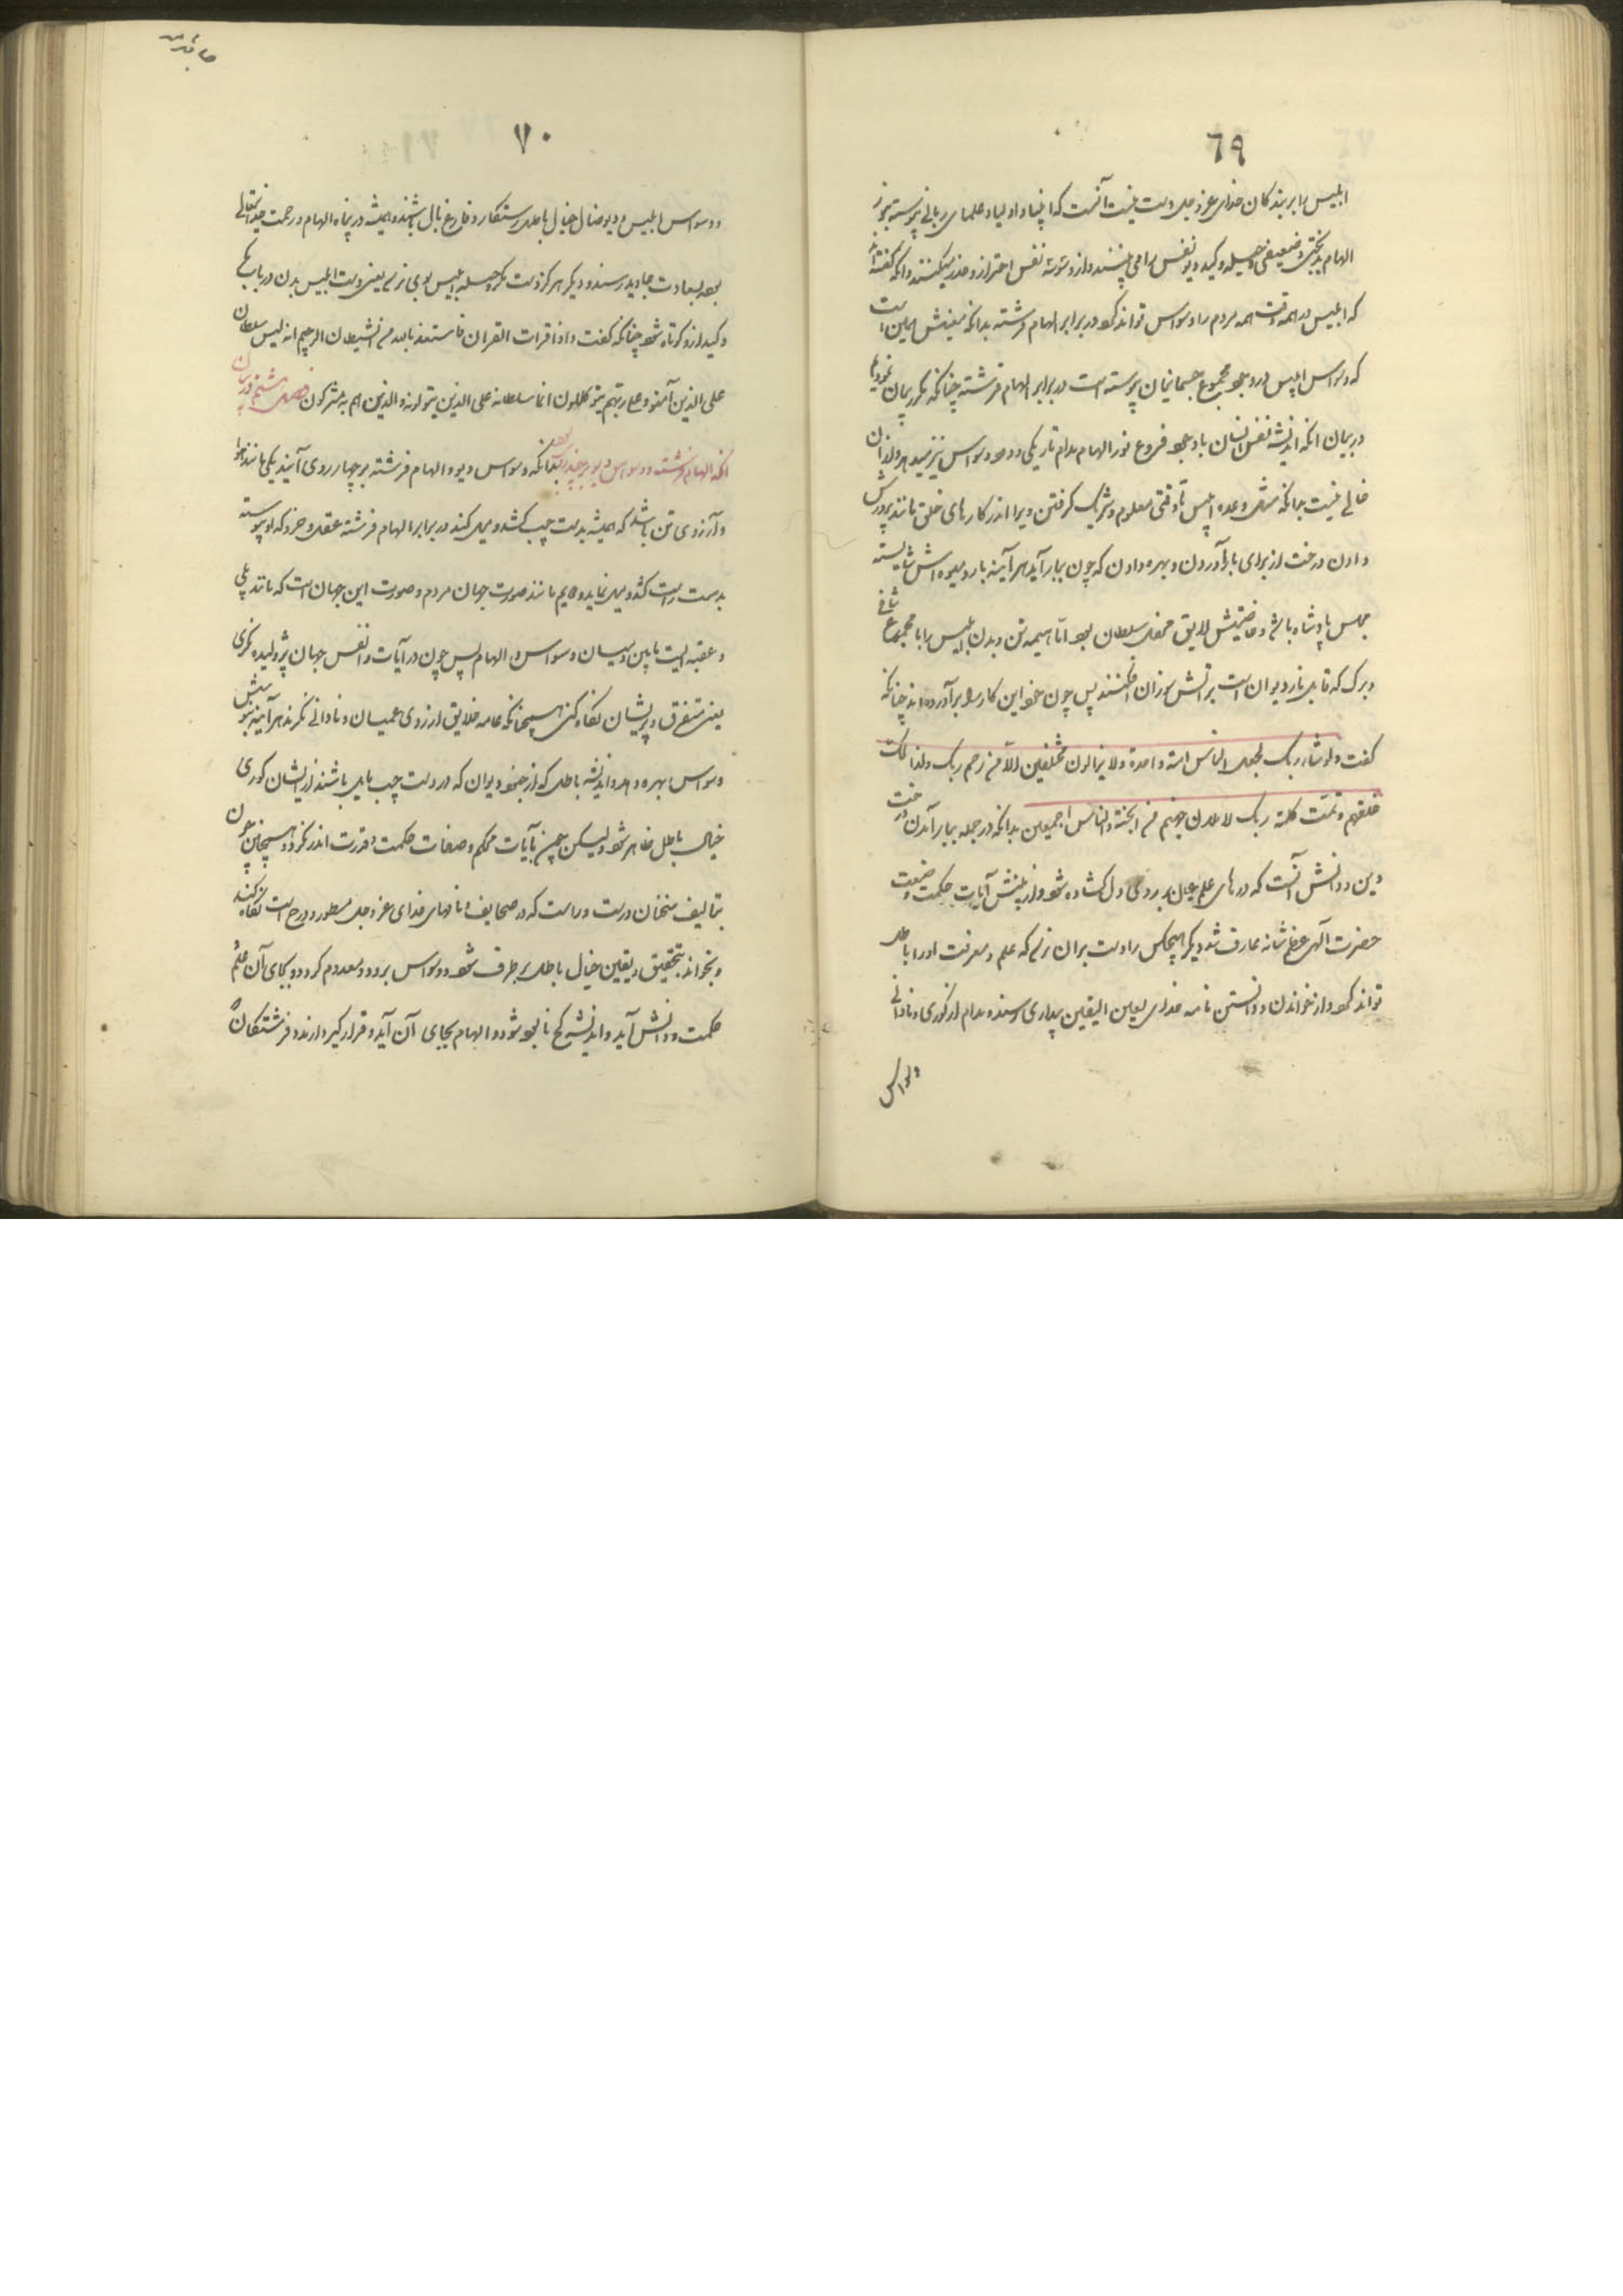 ٦٩
ابلیس را بر بندکان خدای عز و جل دست نیست آنست که انبیا و اولیا و علمای ربانی پیوسته بنور
الهام بدبختی و ضعیفی و حیله و کید دیو نفس را می بینند و از وسوسه نفس احتراز و حذر میکنند و انکه کفته اند
که ابلیس در همه وقت همه مردم را وسواس تواند کرد در برابر الهام فرشته بدانکه معنیش همین است
که وسواس ابلیس در وجود مجموع جسمانیان پیوسته است در برابر الهام فرشته چنانکه مکرر بیان نمودیم
در بیان انکه اندیشه نفس انسان با وجود فروغ نور الهام مدام تاریکی و دود وسواس نیز میدهد و از ان
خالی نیست بدانکه مثل وعده ابلیس تا وقتی معلوم و شریک کرفتن ویرا اندر کارهای خلق مانند پرورش
دادن درخت از برای بار آوردن و بهره دادن که چون ببار آید هر آینه بار و میوه اش شایسته
مجلس پادشاه باشد و خاصیتش لایق محفل سلطان بود اما هیمه تن و بدن ابلیس را با مجموع شاخ
و برک که قابل نار دیوان است بر آتش سوزان افکنند پس چون خود این کار را بر آورده اند چنانکه
کفت ولو شاء ربک لجعل الناس امة واحدة ولا یزالون مختلفین الا من رحم ربک ولذالک
خلقهم و تمت کلمة ربک لاملان جهنم من الجنة والناس اجمعین بدانکه در جمله ببار آمدن درخت
دین و دانش آنست که درهای علم عیان بر روی دل کشاده شود و از بینش آیات حکمت و صنعت
حضرت آلهی عظم شانه عارف شد دیکر هیچکس را دست بران نرسد که علم و معرفت او را باطل
تواند کرد و از خواندن و دانستن نامه خدای بعین الیقین بیداری رسند و مدام از کوری و نادانی
وسواس
٧٠
و وسواس ابلیس و دیو ضال خیال باطل رستکار و فارغ بال باشند و همیشه در پناه الهام و رحمت خدایتعالی
بوده بسعادت جاوید رسند و دیکر هرکز دست مکر و حیله ابلیس بوی نرسد یعنی دست ابلیس بدن در باب مکر
و کید از و کوتاه شود چنانکه کفت و اذا قرات القران فاستعذ بالله من الشیطان الرجیم انه لیس سلطان
علی الذین آمنو و علی ربهم یتوکلون انما سلطانه علی الذین یتولونه والذین هم به مشرکون فصل هشتم در بیان
انکه الهام فرشته و وسواس دیو بر چند وجه بود بدانکه وسواس دیو و الهام فرشته بر چهار روی آیند یکی مانند هوا
و آرزوی تن باشد که همیشه بدست چپ کشد و میل کند در برابر الهام فرشته عقل و خرد که او پیوسته
بدست راست کشد و میل نماید دویم مانند صورت جهان مردم و صورت این جهان است که مانند پلی
و عقبه ایست مابین و میان وسواس و الهام پس چون در آیات و انفس جهان پژولیده نکری
یعنی متفرق و پریشان نکاه کنی همچنانکه عامه خلایق از روی عمیان و نادانی نکرند هر آینه بینش
وسواس بهره دهد و اندیشه باطل که از جنود دیوان که در دست چپ مایل باشند از ایشان کوری
خیال باطل ظاهر شود ولیکن چون بآیات محکم و صفات حکمت و قدرت اندر نکرد و همچنین چون
بتالیف سخنان درست و راست که در صحایف و نامهای خدای عز و جل مسطور و درج است نکاه کند
و بخواند بتحقیق و یقین خیال باطل برطرف شود و وسواس برود و معدوم کردد و بجای آن علم
حکمت و دانش آید و اندیشه کج نابود شود و الهام بجای آن آید و قرار کیرد و ارند و فرشتکان